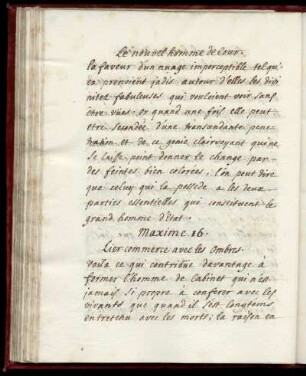 Le nouvel homme de Cour.
la faveur d'un nuage imperceptible tel qu'
en prenoient jadis autour d'elles les divi
nitez fabuleuses qui vouloient voir sans
etre vües. or quand une fois elle peut
etre secondée d'une transcendante pene
tration et de ce genie clairvoyant qui ne
se laisse point donner le change par
des feintes bien colorées, l'on peut dire
que celuy qui la possede a les deux
parties essentielles qui constituent le
grand homme d'Etat.
Maxime 16.
Lier commerce avec les Ombres.
voila ce qui contribüe davantage à
former l'homme de Cabinet qui n'est
jamais si propre à conferer avec les
vivants que quand il s'est longtems
entretenu avec les morts; la raison en